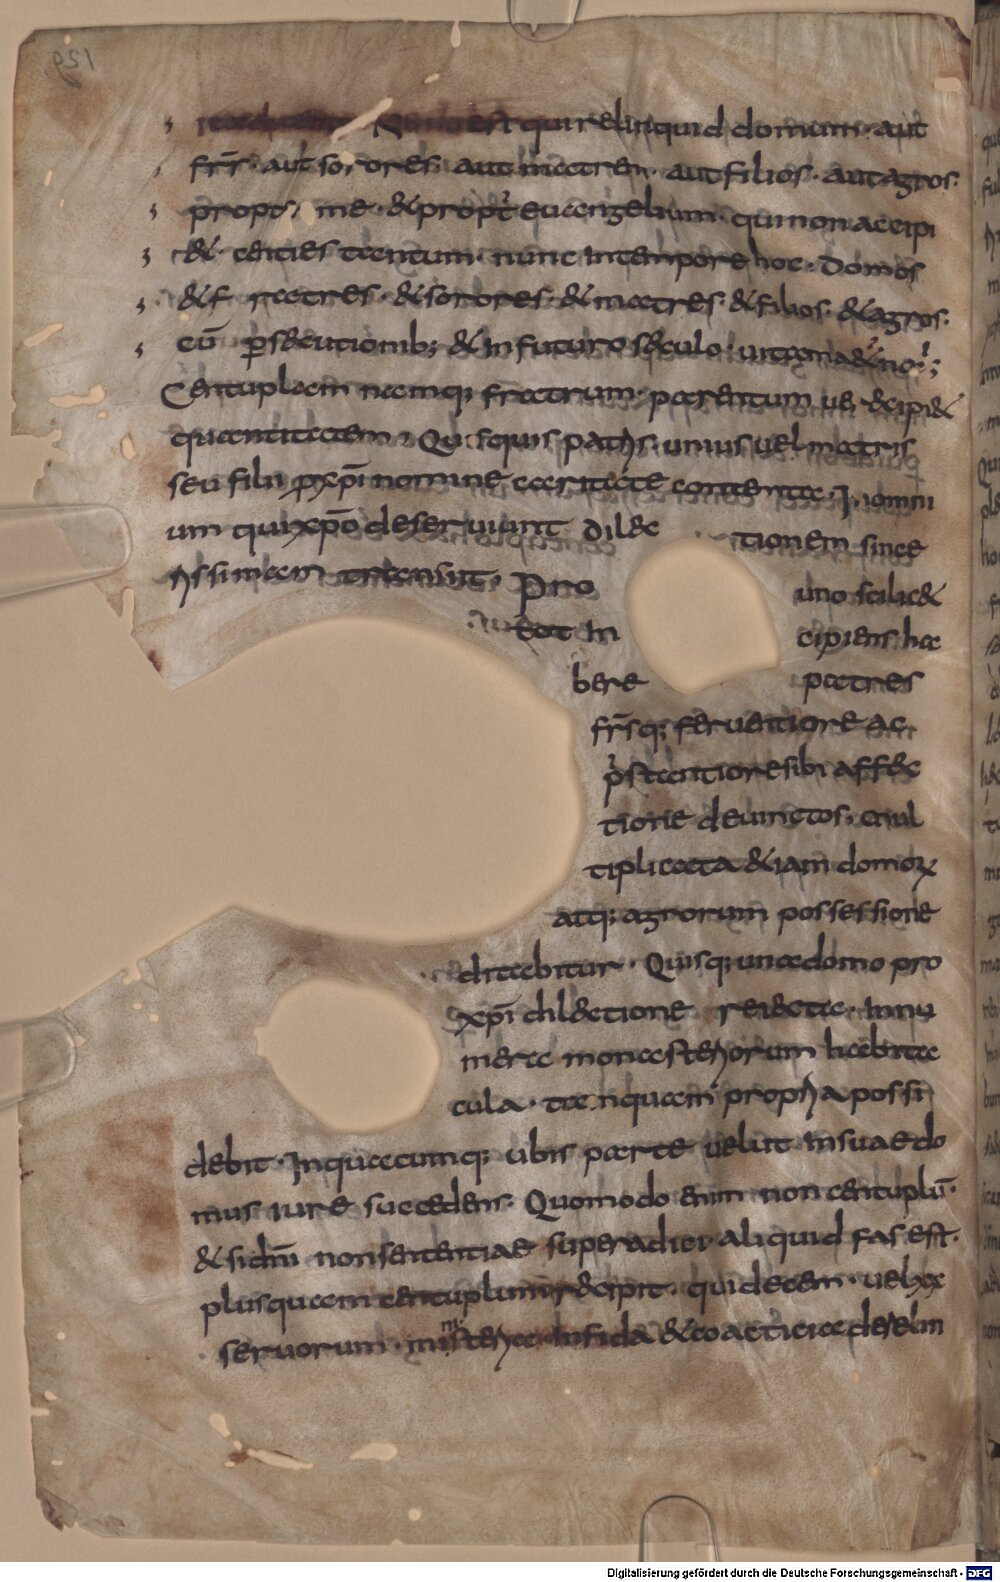 129
Nemo est qui relinquid domum · aut
frr̄ · aut sorores · aut matrem · aut filios · aut agros ·
propt me · & propt̄ euangelium · qui non accipi
& · centies tantum · nunc in tempore hoc · domos
& f ratres · & sorores · & matres · & filios · & agros ·
cū p̄s&cutionib; & in futuro s&culo · uitam &
Centuplam namq; fratrum · parentum ue recipi&
quantitatem · Quisquis patris · unius uel matris
seu filii ꝓ xp̄i nomine caritate contempta · In omni
um qui xp̄o deseruiunt dile ctionem since
rissimam transiit · Pro uno scilic&
tot in cipiens ha
bere patres
fr̄sq; feruentiore ac
p̄stantiore sibi affec
tione deuinctos · mul
tiplicata &iam domoꝝ
atq; agrorum possessione
ditabitur · Quisq; una domo pro
xp̄i dil&ctione reiecta · Innu
mera monasteriorum habita
cula · tanquam propria possi
debit · In quacumq; urbis parte uelut in suae do
mus iure succedens · Quomodo enim non centuplū ·
& si dn̄i non sententiae superadici aliquid fas est ·
plusquam centuplum recipit · qui decem · uel xx
seruorum · ministeria infida & coacticia derelin
Digitalisierung gefördert durch die Deutsche Forschungsgemeinschaft - DFG